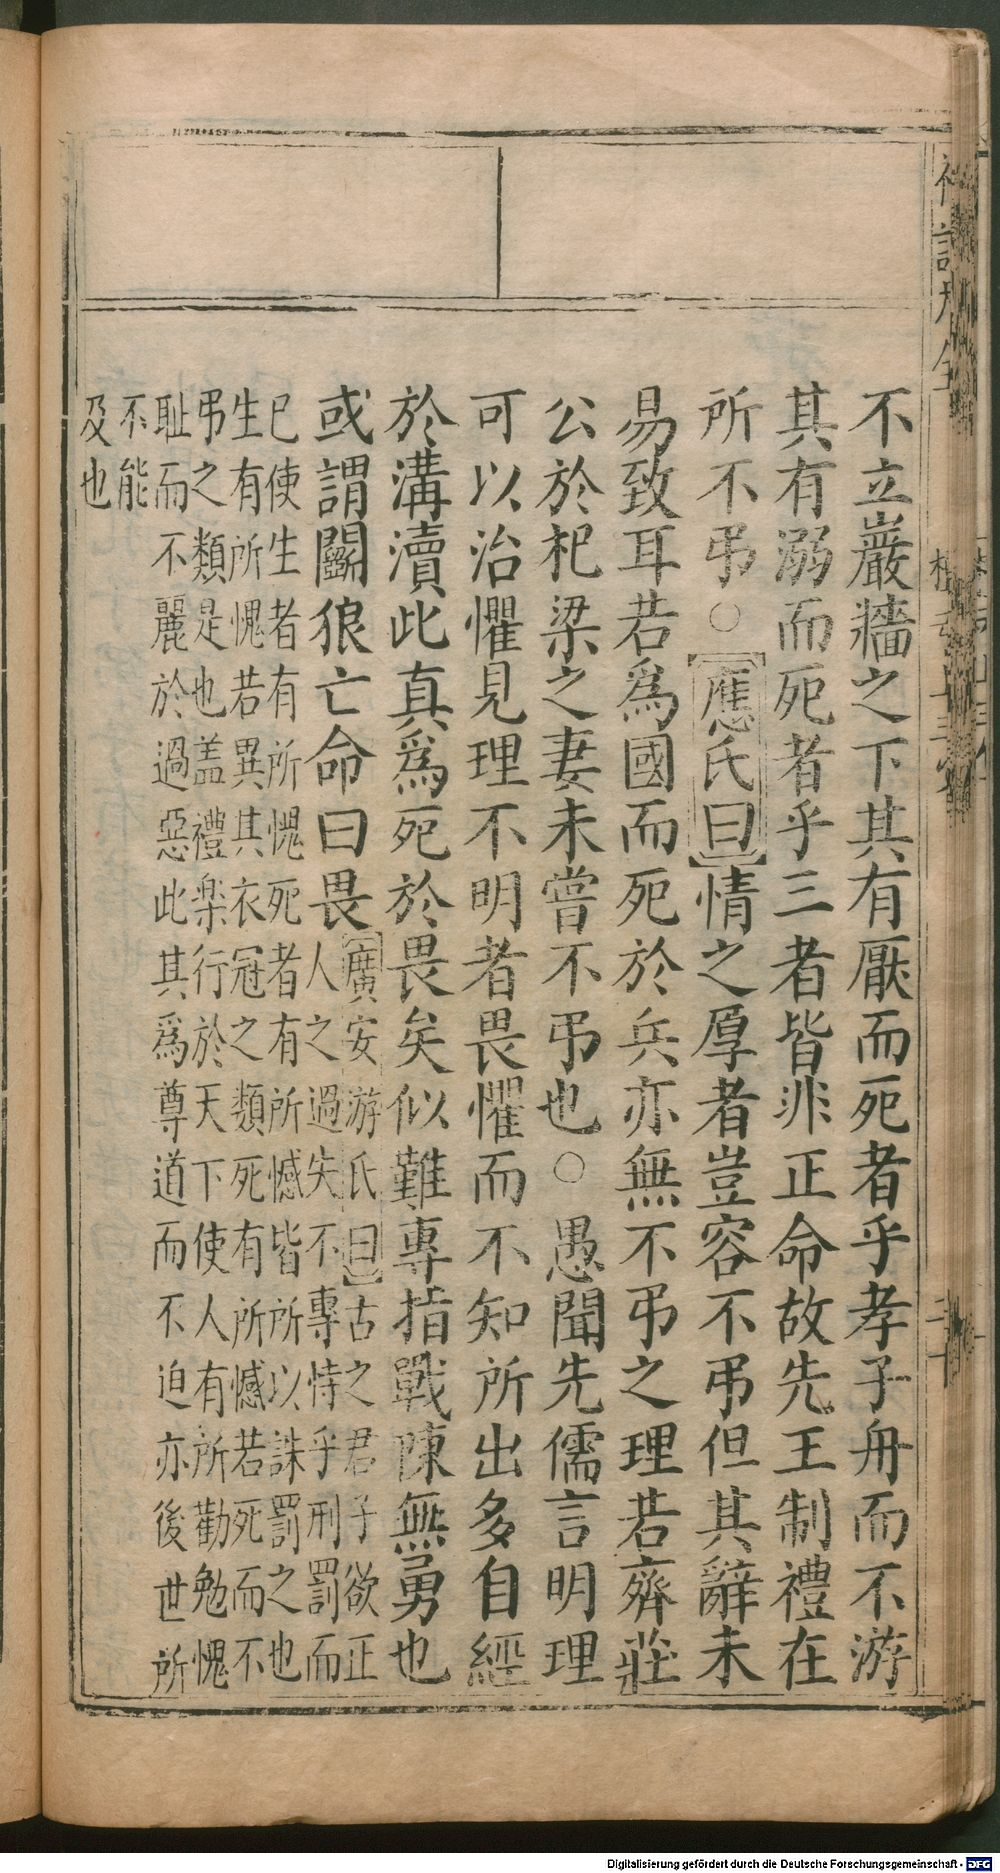 不立巖牆之下其有厭而死者乎孝子舟而不游
其有溺而死者乎三者皆非正命故先王制禮在
所不弔○應氏曰情之厚者豈容不弔但其辭未
易致耳若爲國而死於兵亦無不弔之理若齊莊
公於杞梁之妻未嘗不弔也○愚聞先儒言明理
可以治懼見理不明者畏懼而不知所出多自經
於溝瀆此真爲死於畏矣似難專指戰陳無勇也
或謂鬭狼亡命曰畏廣安游氏曰古之君子欲正
人之過失不專恃乎刑罰而
已使生者有所愧死者有所憾皆所以誅罰之也
生有所愧若異其衣冠之類死有所憾若死而不
弔之類是也盖禮楽行於天下使人有所勸勉愧
耻而不麗於過惡此其爲尊道而不迫亦後世所
不能
及也
Digitalisierung gefördert durch die Deutsche Forschungsgemeinschaft - DFG